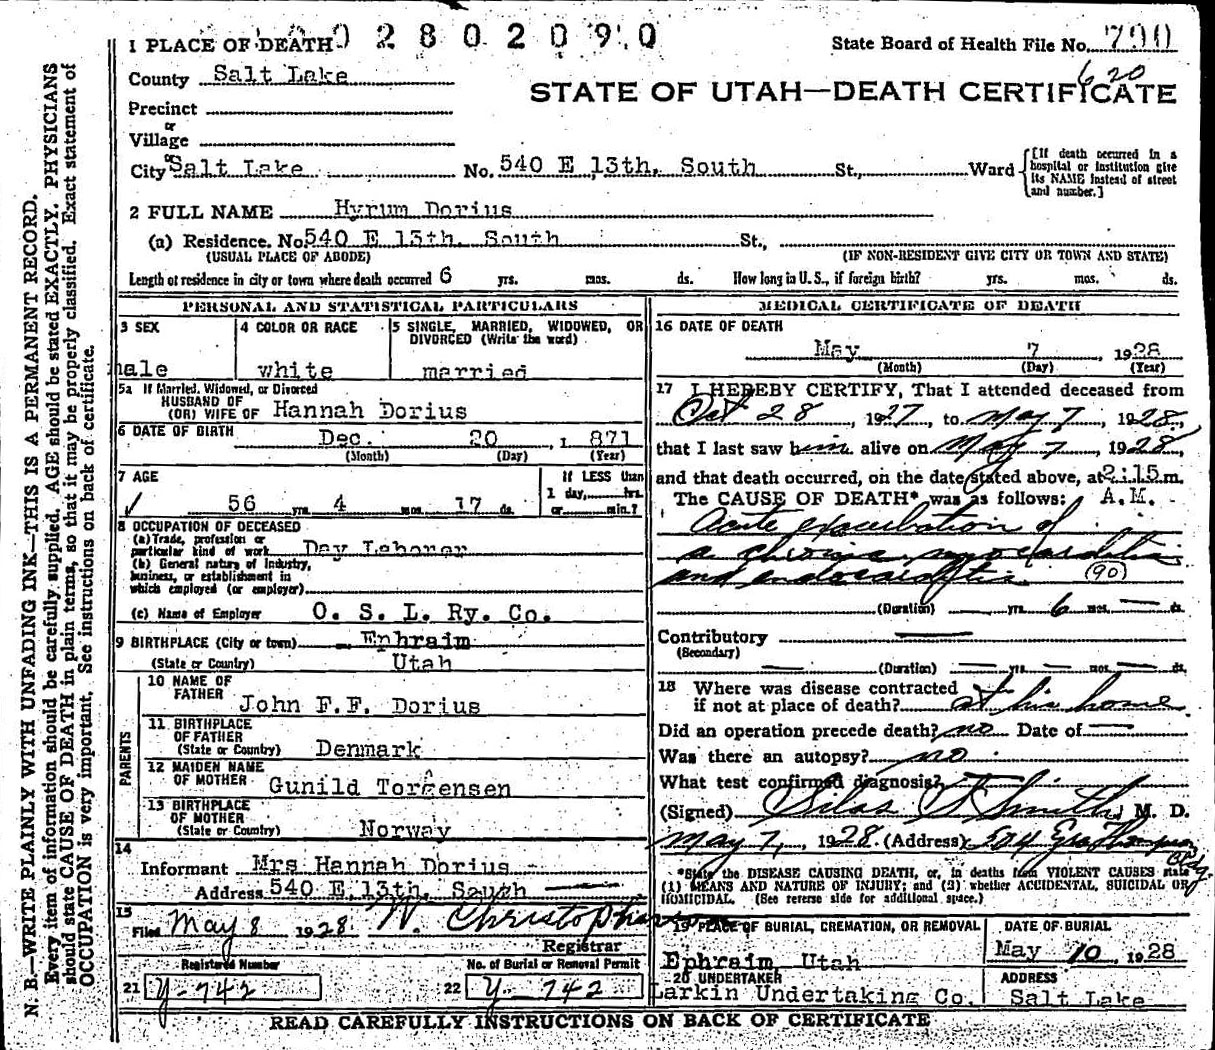 N. B.—WRITE PLAINLY WITH UNFADING INK—THIS IS A PERMANENT RECORD.
Every item of information should be carefully supplied. AGE should be stated EXACTLY. PHYSICIANS
should state CAUSE OF DEATH in plain terms, so that it may be properly classified. Exact statement of
OCCUPATION is very important. See instructions on back of certificate.
0 2 8 0 2 0 9 0
1 PLACE OF DEATH
State Board of Health File No. 700
620
County Salt Lake
STATE OF UTAH—DEATH CERTIFICATE
Precinct
or
Village
or
City Salt Lake No. 540 E 13th, South St., Ward
[If death occurred in a
hospital or institution give
its NAME instead of street
and number.]
2 FULL NAME Hyrum Dorius
(a) Residence. No. 540 E 13th. South St.,
(USUAL PLACE OF ABODE) (IF NON-RESIDENT GIVE CITY OR TOWN AND STATE)
Length of residence in city or town where death occurred 6 yrs. mos. ds. How long in U. S., if foreign birth? yrs. mos. ds.
PERSONAL AND STATISTICAL PARTICULARS
3 SEX
male
4 COLOR OR RACE
white
5 SINGLE, MARRIED, WIDOWED, OR
DIVORCED (Write the word)
married
5a If Married, Widowed, or Divorced
HUSBAND OF
(OR) WIFE OF Hannah Dorius
6 DATE OF BIRTH Dec. 20 , 1 871
(Month) (Day) (Year)
7 AGE
56 yrs. 4 mos. 17 ds.
If LESS than
1 day, hrs.
or min.?
8 OCCUPATION OF DECEASED
(a) Trade, profession or
particular kind of work Day Laborer
(b) General nature of Industry,
business, or establishment in
which employed (or employer)
(c) Name of Employer O. S. L. Ry. Co.
9 BIRTHPLACE (City or town) Ephraim
(State or Country) Utah
PARENTS
10 NAME OF
FATHER John F.F. Dorius
11 BIRTHPLACE
OF FATHER
(State or Country) Denmark
12 MAIDEN NAME
OF MOTHER Gunild Torgensen
13 BIRTHPLACE
OF MOTHER
(State or Country) Norway
14
Informant Mrs Hannah Dorius
Address 540 E 13th. South
15
Filed May 8 1928. W. Christopherson
Registrar
Registered Number
21 Y-742
No. of Burial or Removal Permit
22 Y-742
MEDICAL CERTIFICATE OF DEATH
16 DATE OF DEATH
May 7 , 1928
(Month) (Day) (Year)
17 I HEREBY CERTIFY, That I attended deceased from
Oct 28, 1927, to May 7, 1928,
that I last saw him alive on May 7, 1928,
and that death occurred, on the date stated above, at 2:15 m.
The CAUSE OF DEATH* was as follows: A.M.
Acute exacerbation of
a chronic myocarditis
and endocarditis (90)
(Duration) — yrs. 6 mos. — ds.
Contributory —
(Secondary)
— (Duration) — yrs. — mos. — ds.
18 Where was disease contracted
if not at place of death? at his home
Did an operation precede death? no Date of —
Was there an autopsy? no
What test confirmed diagnosis?
(Signed) Silas S Smith, M. D.
May 7, 1928. (Address) 504 Ezra Thompson
Bldg.
*State the DISEASE CAUSING DEATH, or, in deaths from VIOLENT CAUSES state
(1) MEANS AND NATURE OF INJURY; and (2) whether ACCIDENTAL, SUICIDAL OR
HOMICIDAL. (See reverse side for additional space.)
19 PLACE OF BURIAL, CREMATION, OR REMOVAL
Ephraim Utah
DATE OF BURIAL
May 10, 1928
20 UNDERTAKER
Larkin Undertaking Co.
ADDRESS
Salt Lake
READ CAREFULLY INSTRUCTIONS ON BACK OF CERTIFICATE